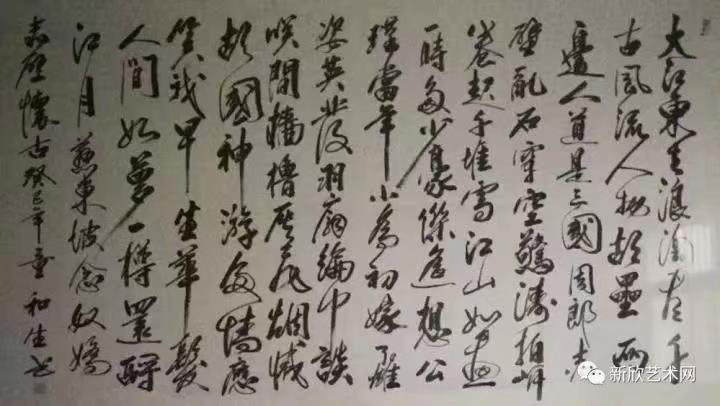 大江東去浪淘盡千
古風流人物故壘西
邊人道是三國周郎赤
壁乱石穿空驚濤拍岸
卷起千堆雪江山如畫
一時多少豪傑遙想公
瑾當年小喬初嫁了雄
姿英發羽扇綸巾談
笑間檣櫓灰飛烟滅
故國神游多情應
笑我早生華髮
人間如夢一樽還酹
江月蘇東坡念奴嬌
赤壁懷古癸巳年童和生书
新欣艺术网